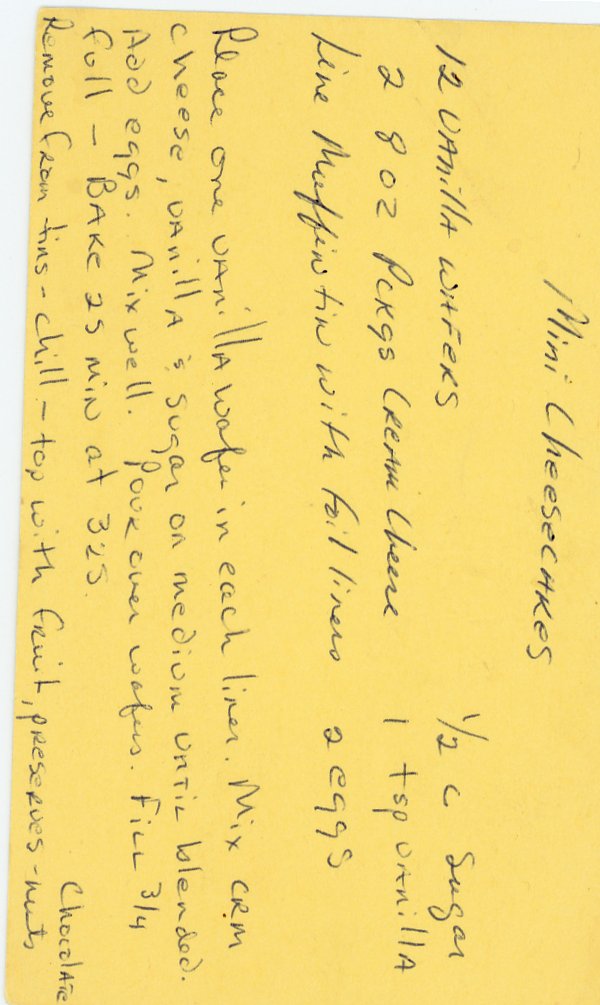 Mini Cheesecakes
12 Vanilla Wafers 1/2 c Sugar
2 8 oz Pckgs Cream Cheese 1 tsp Vanilla
Line Muffin tin with foil liners 2 eggs
Place one vanilla wafer in each liner. Mix crm
cheese, vanilla & sugar on medium until blended.
Add eggs. Mix well. Pour over wafers. Fill 3/4
full - Bake 25 min at 325.
Remove from tins - chill - top with fruit, preserves - nuts
Chocolate